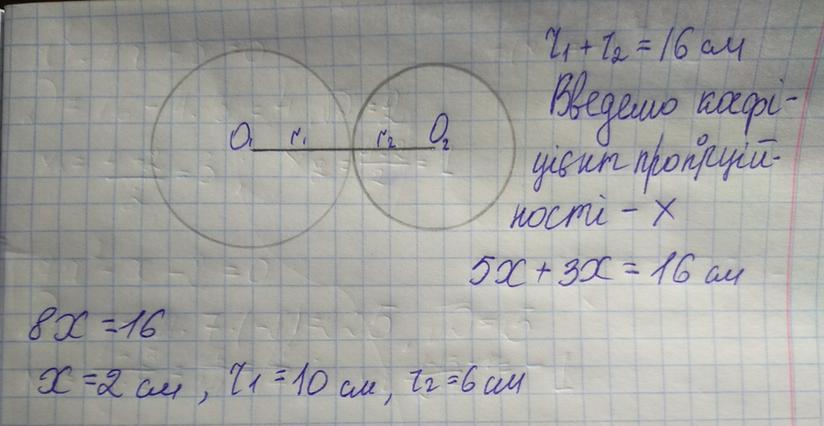 O₁ r₁ r₂ O₂
r₁ + r₂ = 16 см
Введемо коефі-
цієнт пропорцій-
ності - x
5x + 3x = 16 см
8x = 16
x = 2 см, r₁ = 10 см, r₂ = 6 см